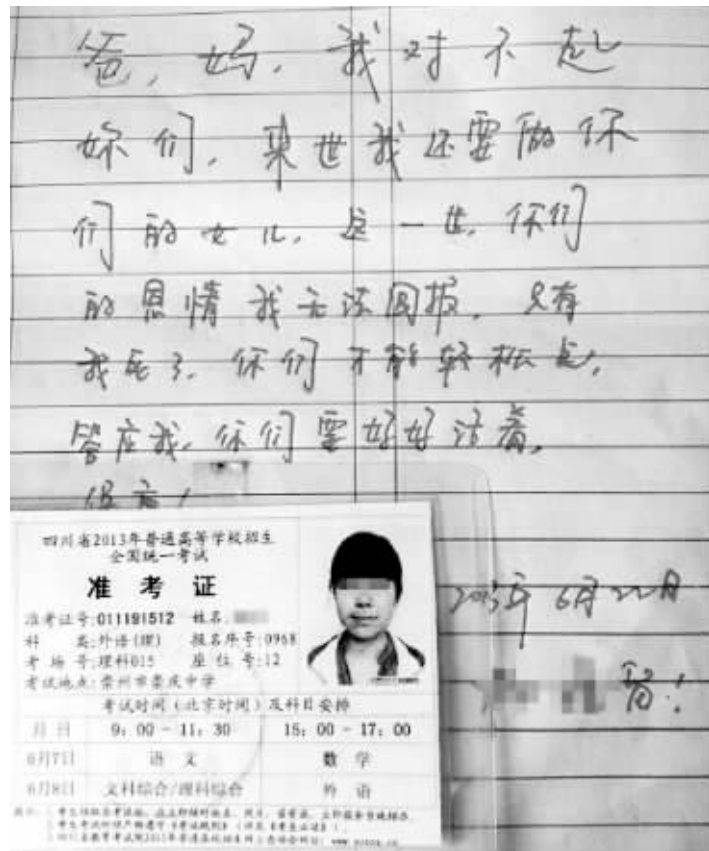 爸，妈，我对不起
你们，来世我还要做你
们的女儿，这一世，你们
的恩情我无法回报，只有
我死了，你们才能轻松点，
答应我，你们要好好活着，
四川省2013年普通高等学校招生
全国统一考试
准考证
准考证号:011191512 姓名:
科 类:外语(理) 报名序号:0968
考 场 号:理科015 座 位 号:12
考试地点:崇州市崇庆中学
考试时间(北京时间)及科目安排
月 日 9:00-11:30 15:00-17:00
6月7日 语 文 数 学
6月8日 文科综合/理科综合 外 语
2013年6月22日
留！